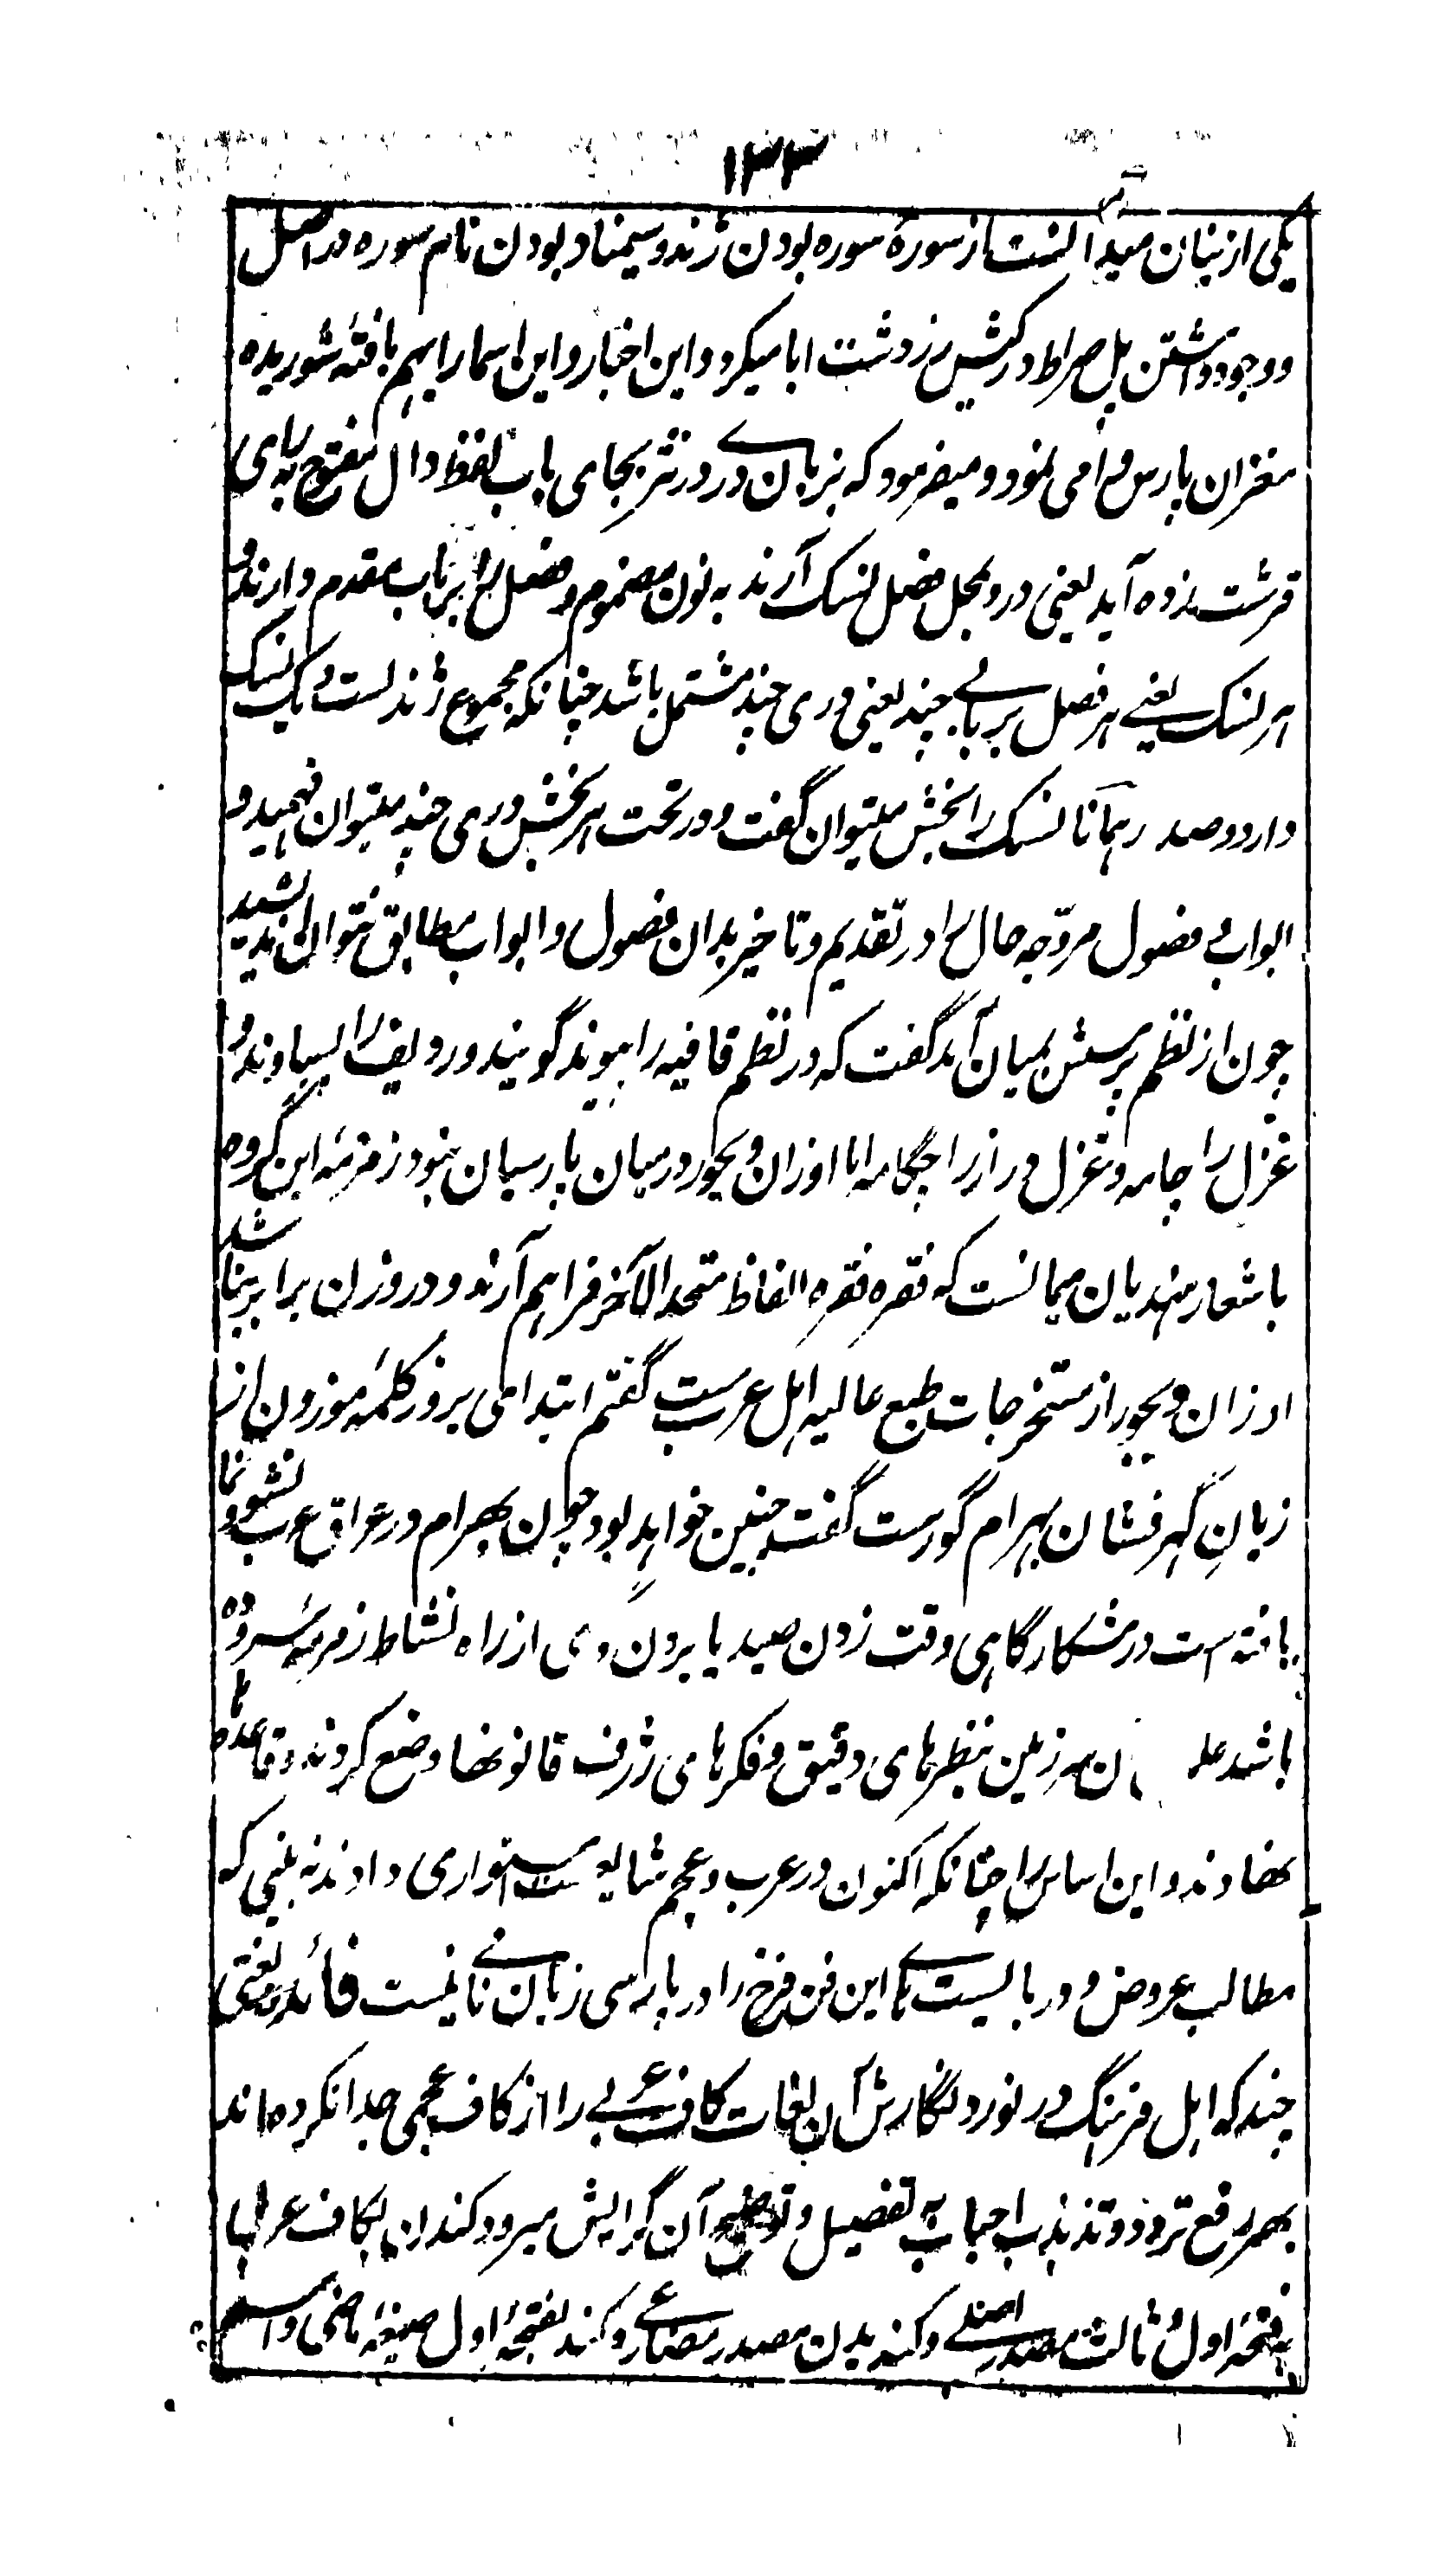 ۱۳۳
یکی از بنیان میدانست از سورهٔ سوره بودن ژند و سیمناد بودن نام سوره در اصل
و وجود داشتن پل صراط در کیش زردشت ابا میکرد و این اخبار و این اسما را بهم بافتهٔ شوریده
مغزان پارس وا می نمود و میفرمود که بزبان دری در نثر بجای باب لفظ دال مفتوح به رای
قرشت زده آید یعنی در و بمحل فصل نسک آرند به نون مضموم و فصل را بر باب مقدم دارند و
هر نسک یعنے هر فصل بر بابی چند یعنی دری چند مشتمل باشد چنانکه مجموع ژند بست و یک نسک
دارد و صد در همانا نسک را بخش میتوان گفت و در تحت هر بخش دری چند میتوان فهمید و
ابواب و فصول مروّجه حال را در تقدیم و تاخیر بدان فصول و ابواب مطابق نتوان اندیشید
چون از نظم پرسش بمیان آمد گفت که در نظم قافیه را پیوند گویند و ردیف را پساوند و
غزل را چامه و غزل دراز را چکامه اما اوزان و بحور در میان پارسیان نبود زمزمهٔ این گروه
باشعار هندیان میمانست که فقره فقره الفاظ متحد الآخر فراهم آرند و در وزن برابر نباشد
اوزان و بحور از مستخرجات طبع عالیه اهل عربست گفتم ابتدای بروز کلمهٔ موزون از
زبانِ گهرفشان بهرام گورست گفت چنین خواهد بود چون بهرام در عراق عرب نشو و نما
یافته است در شکارگاهی وقت زدن صید یا بردن وی از راه نشاط زمزمهٔ سروده
باشد ن سرزمین بنظرهای دقیق و فکرهای ژرف قانونها وضع کردند و قاعده ها
نهادند و این اساس را چنانکه اکنون در عرب و عجم استواری دادند نه بینی که
مطالب عروض و دربایست های این فن فرخ را در پارسی زبانے نامی نیست فائده لغتی
چند که اهل فرهنگ در نورد نگارش آن لغات کاف عربے را از کاف عجمی جدا نکرده اند
بهر رفع تردد و تذبذب احباب به تفصیل و توضیح آن گرایش میرود کندن بکاف عربی با
فتحهٔ اول و ثالث مصدر اصلے و کنه بدن مصدر مضارعے و کند بفتحهٔ اول صیغهٔ ماضی و اسم